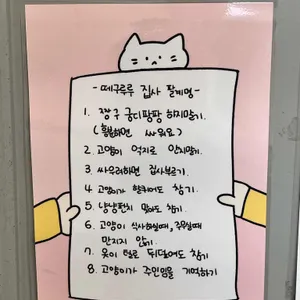 - 떼구루루 집사 팔계명 -
1. 짱구 궁디팡팡 하지말기.
(흥분하면 싸워요)
2. 고양이 억지로 안지말기.
3. 싸우려하면 집사부르기.
4 고양이가 할퀴어도 참기.
5. 냥냥펀치 맞아도 참기.
6. 고양이 식사하실때, 주무실때
만지지 않기.
7. 옷이 털로 뒤덮여도 참기
8. 고양이가 주인임을 기억하기